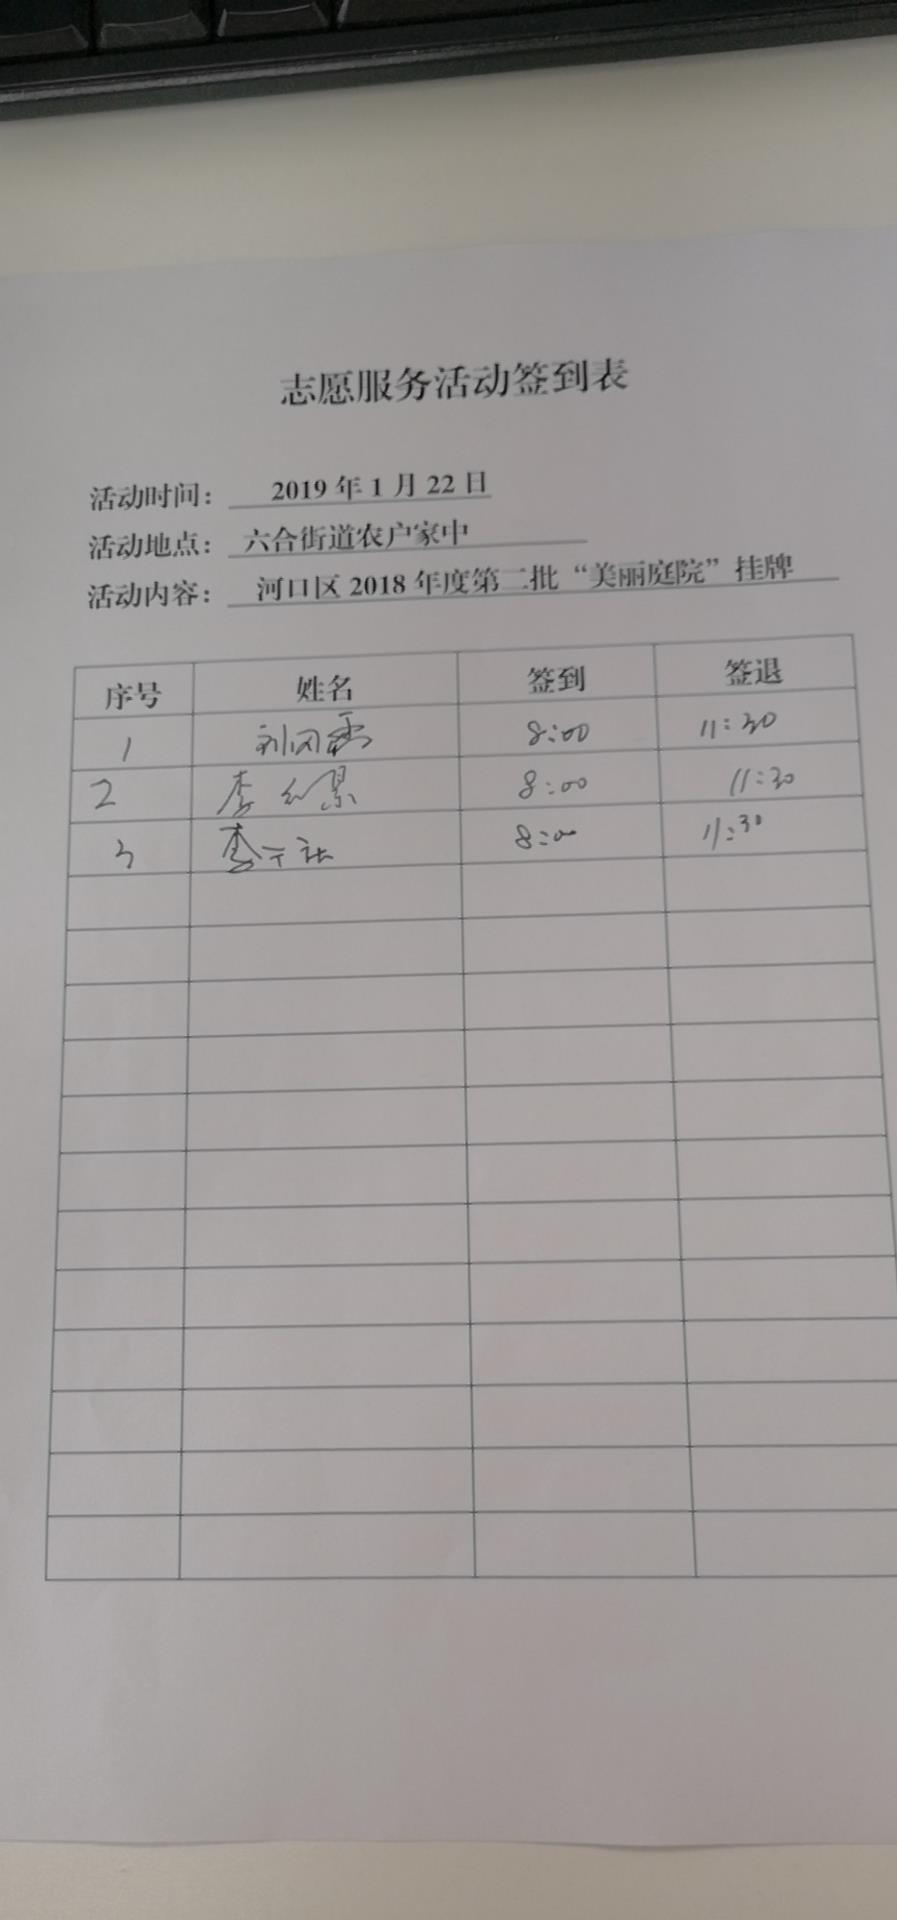 志愿服务活动签到表
活动时间： 2019 年 1 月 22 日
活动地点： 六合街道农户家中
活动内容： 河口区 2018 年度第二批“美丽庭院”挂牌
序号 姓名 签到 签退
1 8:00 11:30
2 李 8:00 11:30
3 李 8:00 11:30